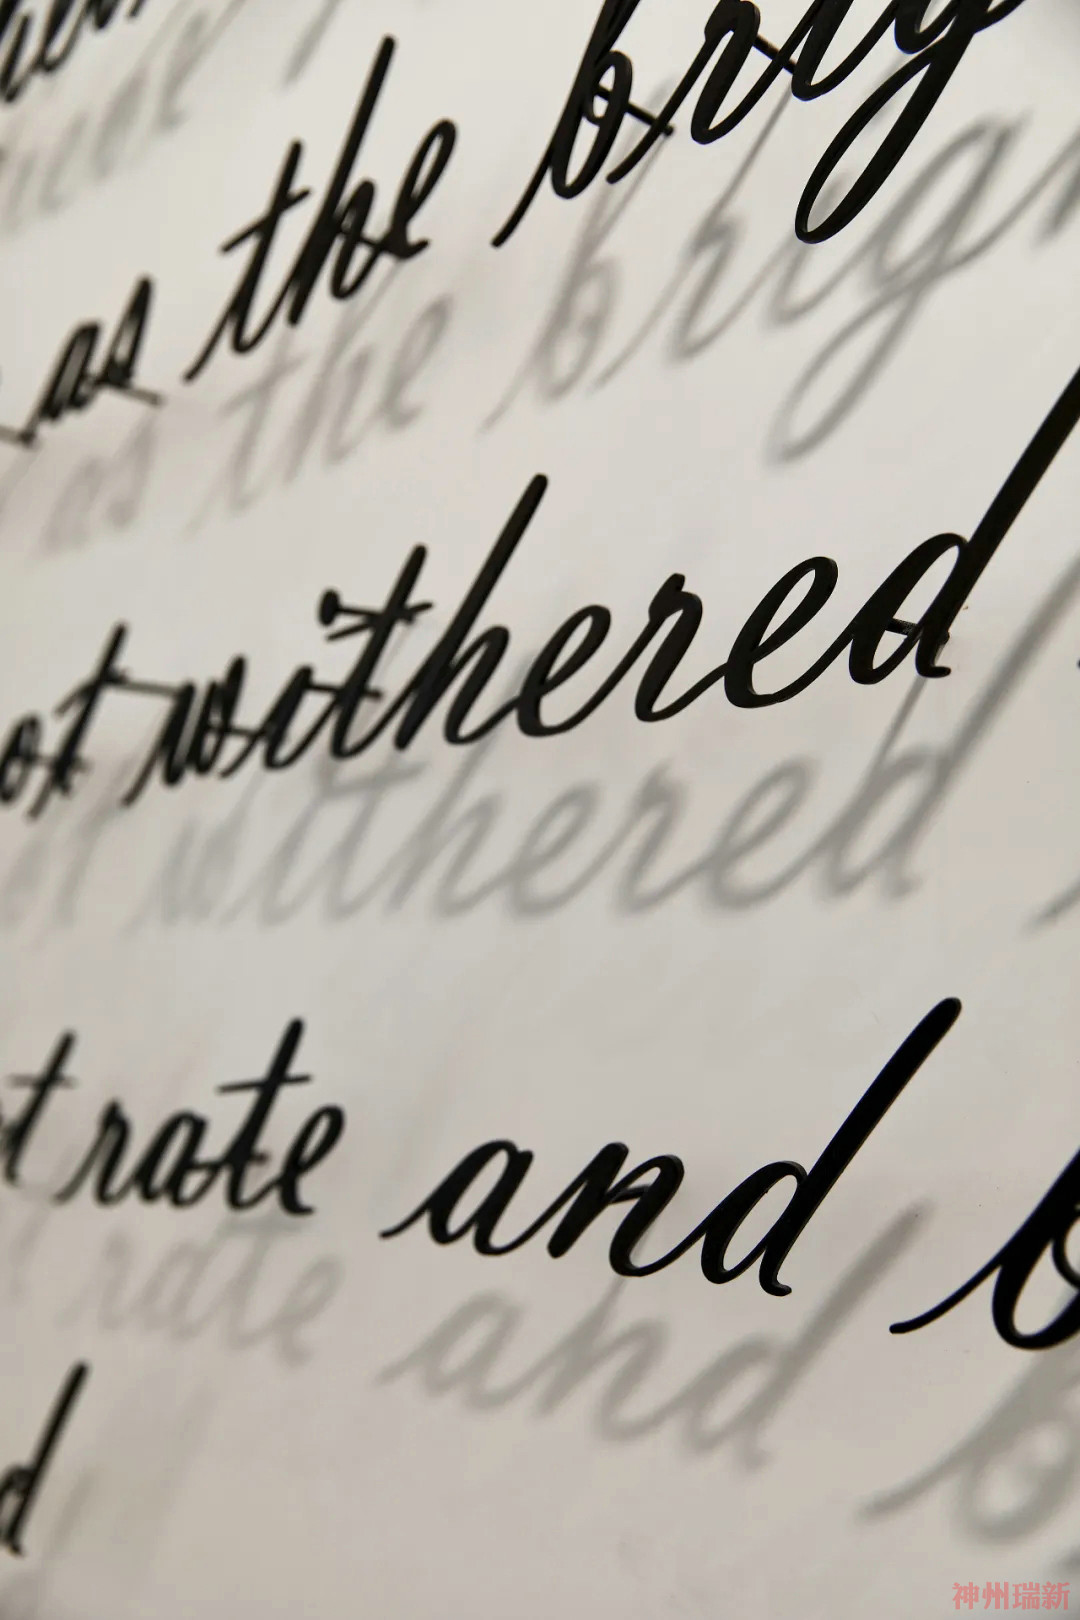 as the brig
ot withered
t rate and b
d
神州瑞新